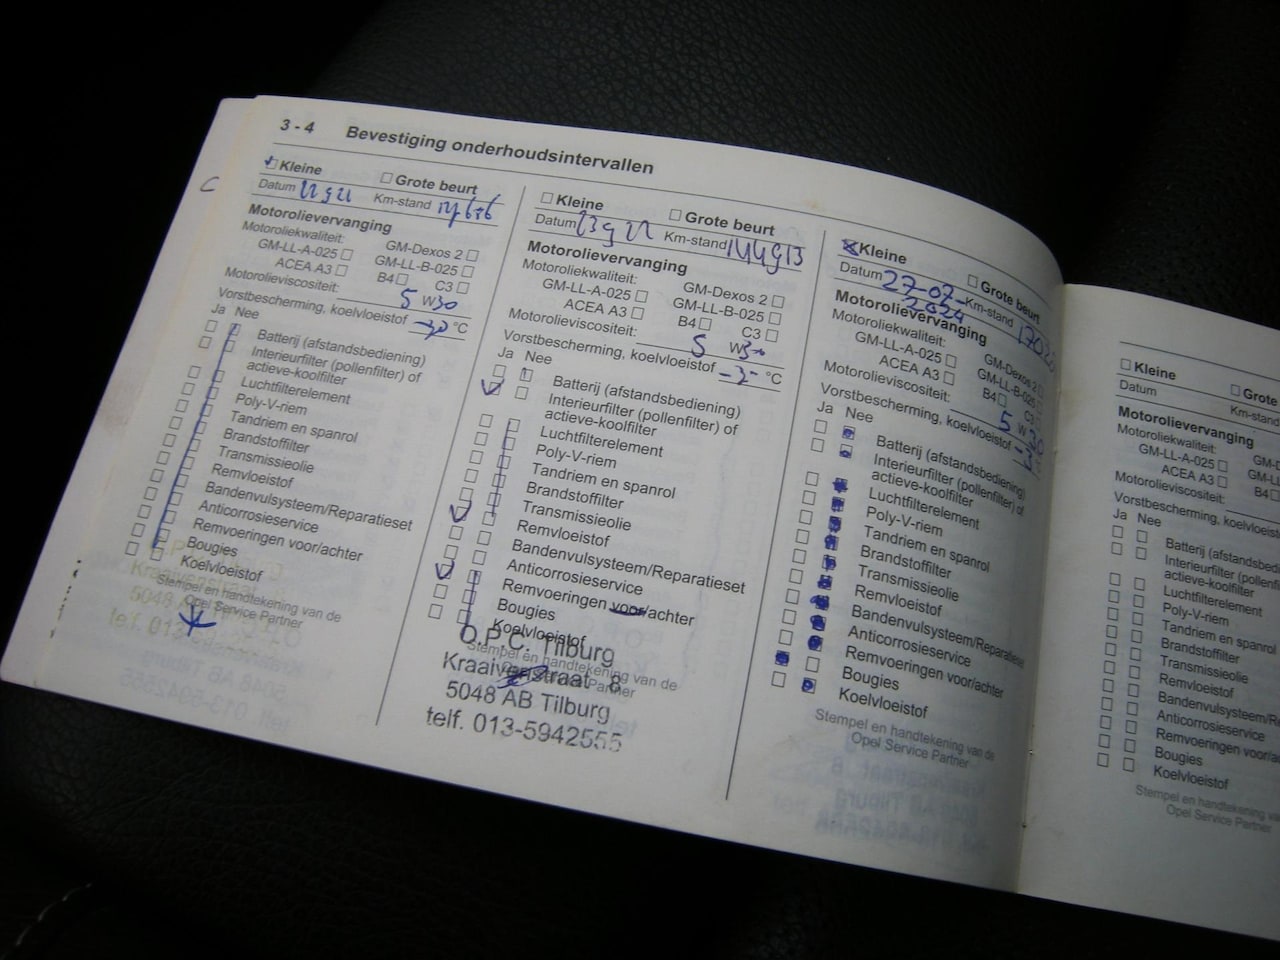 3 - 4 Bevestiging onderhoudsintervallen
Kleine Grote beurt
Datum Km-stand
Motorolievervanging
Motoroliekwaliteit:
GM-LL-A-025 GM-Dexos 2
ACEA A3 GM-LL-B-025
B4 C3
Motorolieviscositeit: 5 W30
Vorstbescherming, koelvloeistof -30 °C
Ja Nee
Batterij (afstandsbediening)
Interieurfilter (pollenfilter) of
actieve-koolfilter
Luchtfilterelement
Poly-V-riem
Tandriem en spanrol
Brandstoffilter
Transmissieolie
Remvloeistof
Bandenvulsysteem/Reparatieset
Anticorrosieservice
Remvoeringen voor/achter
Bougies
Koelvloeistof
Stempel en handtekening van de
Opel Service Partner
Kleine Grote beurt
Datum Km-stand
Motorolievervanging
Motoroliekwaliteit:
GM-LL-A-025 GM-Dexos 2
ACEA A3 GM-LL-B-025
B4 C3
Motorolieviscositeit: 5 W30
Vorstbescherming, koelvloeistof °C
Ja Nee
Batterij (afstandsbediening)
Interieurfilter (pollenfilter) of
actieve-koolfilter
Luchtfilterelement
Poly-V-riem
Tandriem en spanrol
Brandstoffilter
Transmissieolie
Remvloeistof
Bandenvulsysteem/Reparatieset
Anticorrosieservice
Remvoeringen voor/achter
Bougies
Koelvloeistof
Stempel en handtekening van de
Opel Service Partner
O.P.C. Tilburg
Kraaivenstraat 8
5048 AB Tilburg
telf. 013-5942555
Kleine Grote beurt
Datum 27-07-2024 Km-stand
Motorolievervanging
Motoroliekwaliteit:
GM-LL-A-025 GM-Dexos 2
ACEA A3 GM-LL-B-025
B4 C3
Motorolieviscositeit: 5 W 30
Vorstbescherming, koelvloeistof
Ja Nee
Batterij (afstandsbediening)
Interieurfilter (pollenfilter) of
actieve-koolfilter
Luchtfilterelement
Poly-V-riem
Tandriem en spanrol
Brandstoffilter
Transmissieolie
Remvloeistof
Bandenvulsysteem/Reparatieset
Anticorrosieservice
Remvoeringen voor/achter
Bougies
Koelvloeistof
Stempel en handtekening van de
Opel Service Partner
Kleine Grote
Datum Km-stand
Motorolievervanging
Motoroliekwaliteit:
GM-LL-A-025
ACEA A3
Motorolieviscositeit:
Vorstbescherming, koelvloeis
Ja Nee
Batterij (afstandsbe
Interieurfilter (pollenf
actieve-koolfilter
Luchtfilterelement
Poly-V-riem
Tandriem en spanrol
Brandstoffilter
Transmissieolie
Remvloeistof
Bandenvulsysteem/R
Anticorrosieservice
Remvoeringen voor/a
Bougies
Koelvloeistof
Stempel en handtekening va
Opel Service Partner